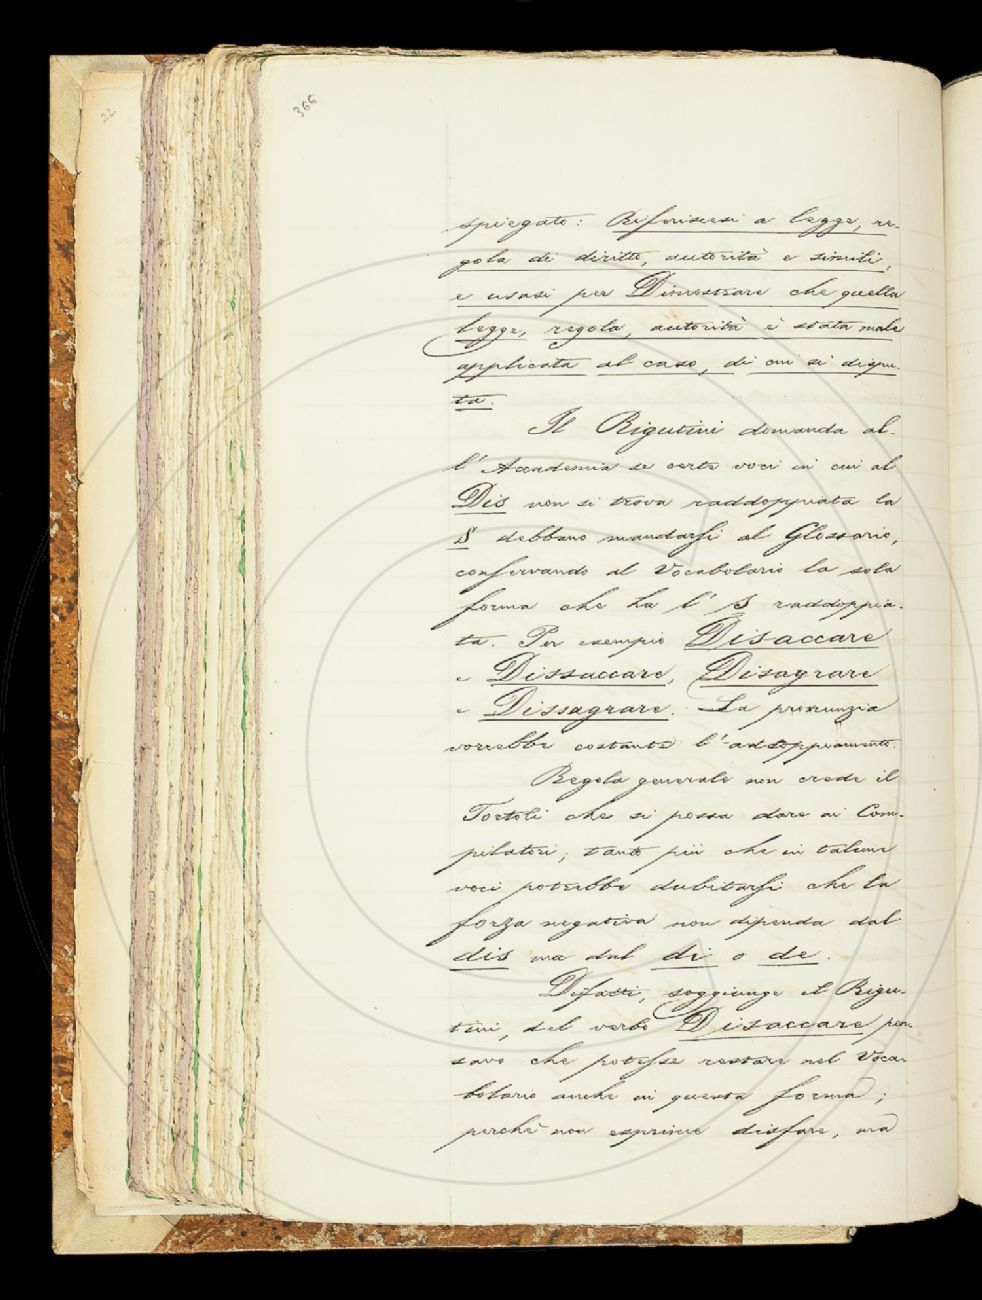 22
366
spiegato: Riferiscesi a legge, re-
gola di diritto, autorità e simili,
e usasi per Dimostrare che quella
legge, regola, autorità è stata male
applicata al caso, di cui si dispu-
ta.
Il Rigutini domanda al-
l'Accademia se certe voci in cui al
Dis non si trova raddoppiata la
S debbano mandarsi al Glossario,
conservando al Vocabolario la sola
forma che ha l'S raddoppia-
ta. Per esempio Disaccare
e Dissaccare, Disagrare
e Dissagrare. La pronunzia
vorrebbe costante l'addoppiamento.
Regola generale non crede il
Tortoli che si possa dare ai Com-
pilatori; tanto più che in talune
voci potrebbe dubitarsi che la
forza negativa non dipenda dal
dis ma dal di o de.
Difatti, soggiunge il Rigu-
tini, del verbo Disaccare pen-
savo che potesse restare nel Voca-
bolario anche in questa forma;
perchè non esprime disfare, ma